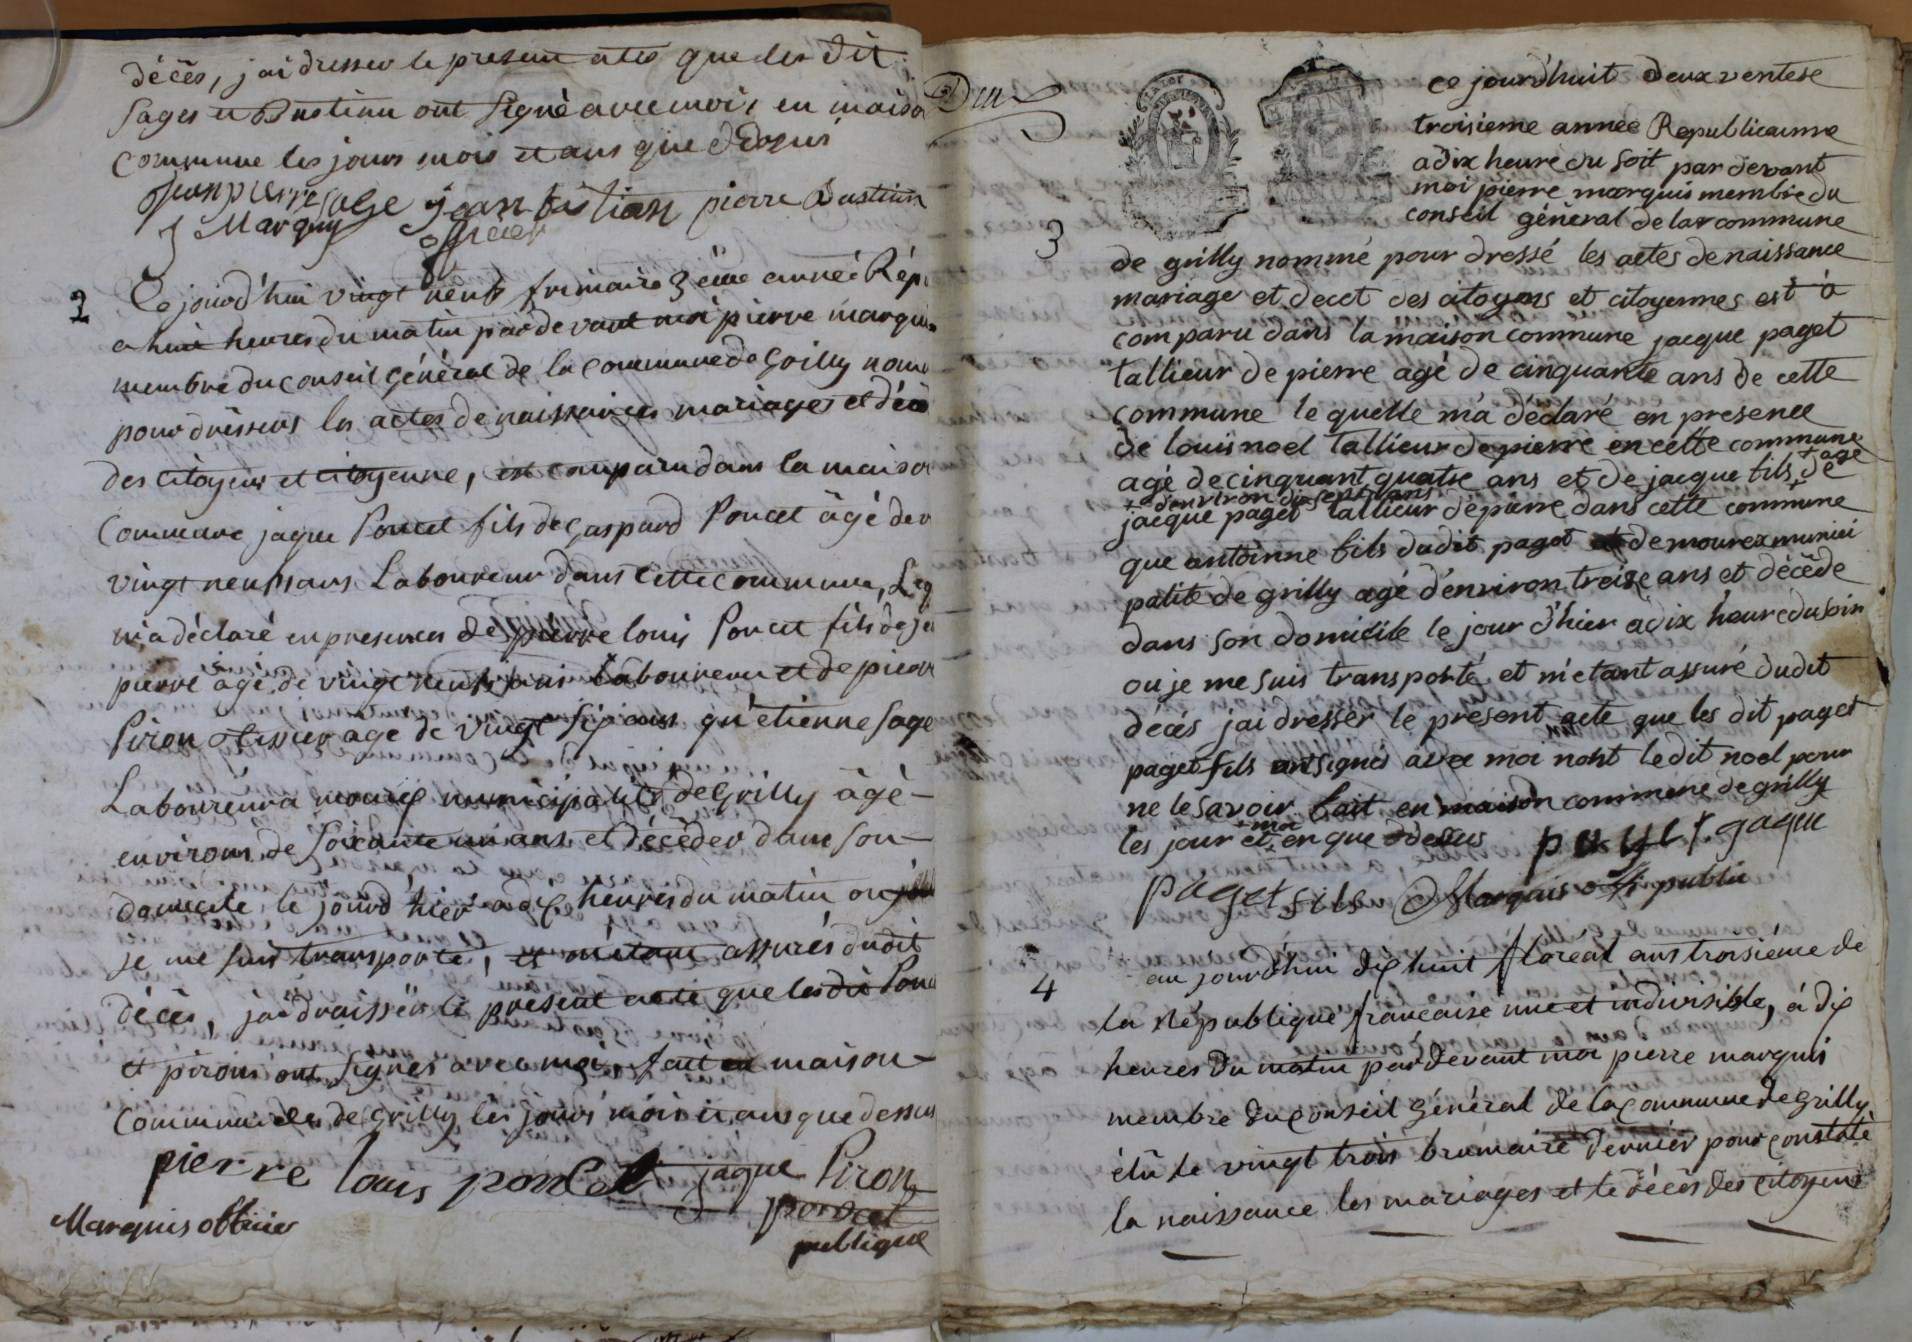 décès, j'ai dresser le present acte que les dit
Sages et Bastian ont Signé avec moi, en maiso
Commune les jours mois et ans que dessus
jean pierre sage jean bastian pierre Bastian
J Marquis officier
2
Ce jourd'hui vingt neuf frimaire 3ème année Rép
a huit heures du matin par devant moi pierre marquis
membre du conseil général de la Commune de Grilly nomé
pour dressers les actes de naissances mariages et décé
des Citoyens et citoyenne, est comparu dans la maison
Commune jaque Poncet fils de Gaspard Poncet âgé de
vingt neuf ans Laboureur dans Cette Commune, Leq
m'a déclaré en presences de pierre louis Poncet fils de je
pierre agé de vingt neuf ans Laboureur et de pierre
Piron age de vingt Six ans qu'etienne Sage
Laboureur a mourex municipalité de Grilly âgé
environs de Soixante un ans et Décéder dans Son
domicile le jourd'hier a dix heures du matin ou
je me suis transporté, et m'etant assurés dudit
décès, j'ai draisser le present acte que les dit Ponc
et pirons ont Signés avec moi, fait en maison
Commune de Grilly les jours mois et ans que dessus
pierre louis poncet jaque Piron
poncet
Marquis officier publique
Deux
ce jourd'huit Deux ventose
troisieme année Republicainne
a dix heure du soit par devant
moi pierre marquis membre du
conseil général de la commune
3
de grilly nommé pour dressé les actes de naissance
mariage et decet des citoyens et citoyennes est à
comparu dans la maison commune jacque paget
tallieur de pierre agé de cinquante ans de cette
commune le quelle m'a déclaré en presence
de louis noel tallieur de pierre en cette commune
agé de cinquant quatre ans et de jacque fils de age
d'environ dix sept ans
jacque paget tallieur de pierre dans cette commune
que antoinne fils dudit paget de mourex munici
palité de grilly agé d'environ treize ans et décéde
dans son domicile le jour d'hier a dix heure du soir
ou je me suis transporté et m'etant assuré dudit
décés jai dresser le present acte que les dit paget
paget fils ont signés avec moi nont le dit noel pour
ne le savoir fait en maison commune de grilly
les jour moi et en que dessus paget jaque
paget fils Marquis offi public
4
au jourd'hui dix huit floreal ans troisiéme de
la République française une et indivisible, à dix
heures du matin par devant moi pierre marquis
membre du Conseil général de la Commune de grilly
élû le vingt trois brumaire dernier pour constaté
la naissance les mariages et le décès des citoyens